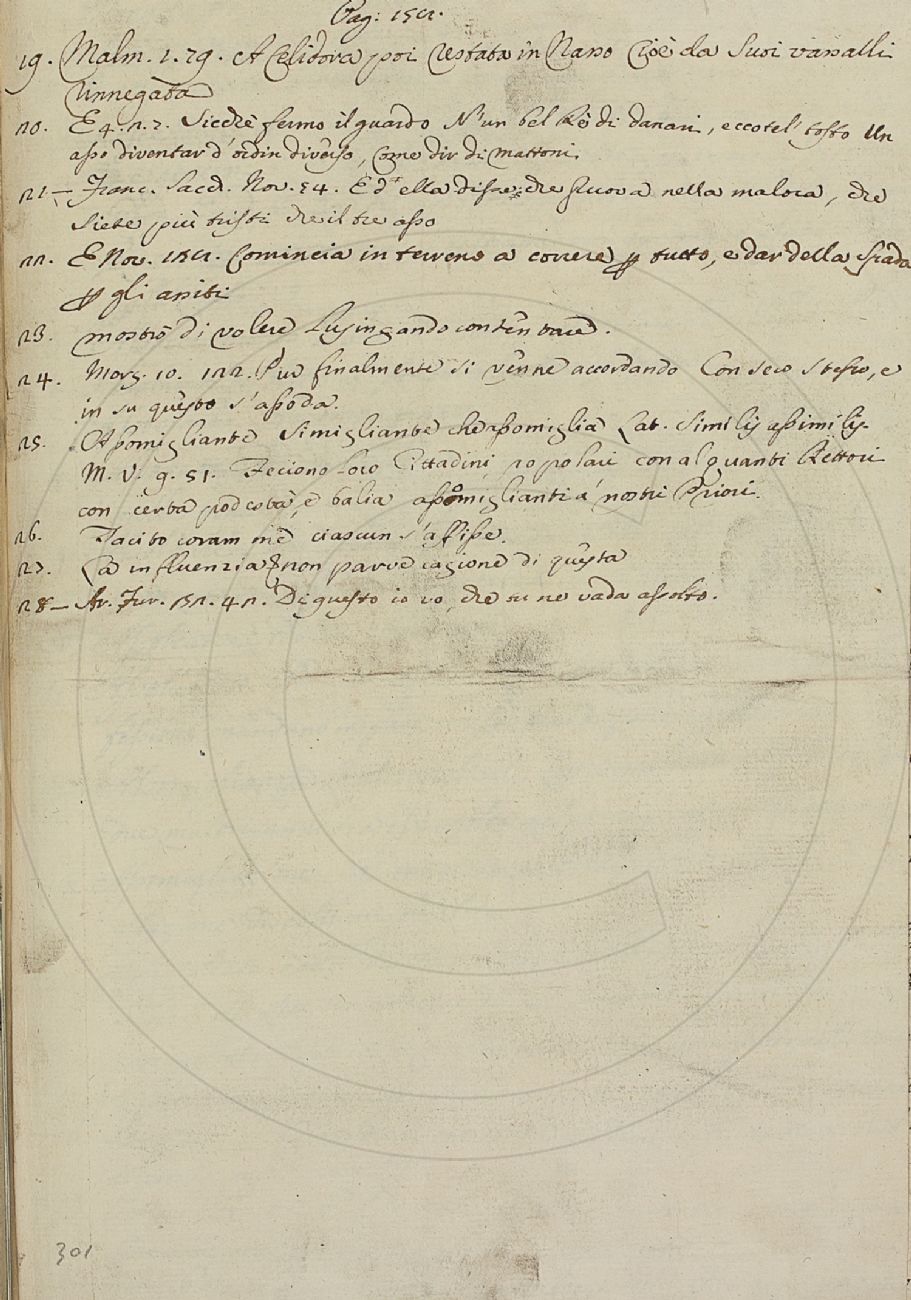 Pag: 152.
19. Malm. 1. 79. A Celidora poi restata in Nasso Cioè da suoi vassalli
rinnegata
20. E 4. 12. Sicchè fermo il guardo N'un bel Rè di danari, eccotel' tosto Un
asso diventar d'ordin diverso, Come dir di mattoni.
21 — Franc. Sacch. Nov. 54. Ed ella disse: che suora nella malora, che
siete più tristi che il tre asso
22. E Nov. 152. Comincia in terreno a correre p tutto, e dar della spada
p gli assiti
23. mostrò di volere lusingando
24. Morg. 10. 122. Pur finalmente si venne accordando Con seco stesso, e
in su questo s'assoda.
25. Assomigliante Simigliante che assomiglia Lat. Similis assimilis.
M. V. 9. 51. Feciono loro Cittadini popolari con alquanti Rettori
con certa podestà, e balia assomiglianti a' nostri Priori.
26. Tacito coram me ciascun s'affisse.
27. La influenzia non parve cagione di questa
28 — Ar. Fur. 42. Di questo io vo, che tu ne vada assolto.
301